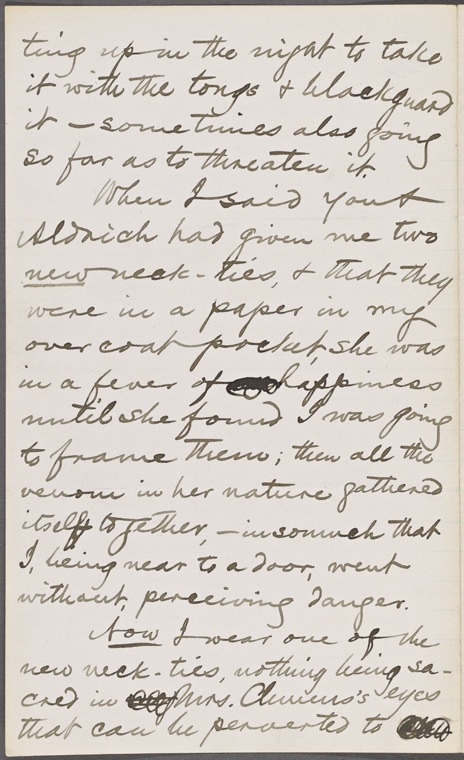 ting up in the night to take
it with the tongs & blackguard
it – sometimes also going
so far as to threaten it.
When I said you &
Aldrich had given me two
new neck-ties, & that they
were in a paper in my
over coat pocket, she was
in a fever of happiness
until she found I was going
to frame them; then all the
venom in her nature gathered
itself together, – insomuch that
I, being near to a door, went
without, perceiving danger.
Now I wear one of the
new neck-ties, nothing being sa-
cred in Mrs. Clemens's eyes
that can be perverted to